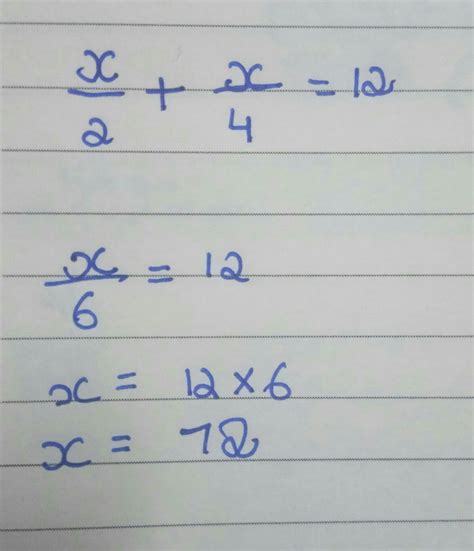 x/2 + x/4 = 12
x/6 = 12
x = 12 × 6
x = 72